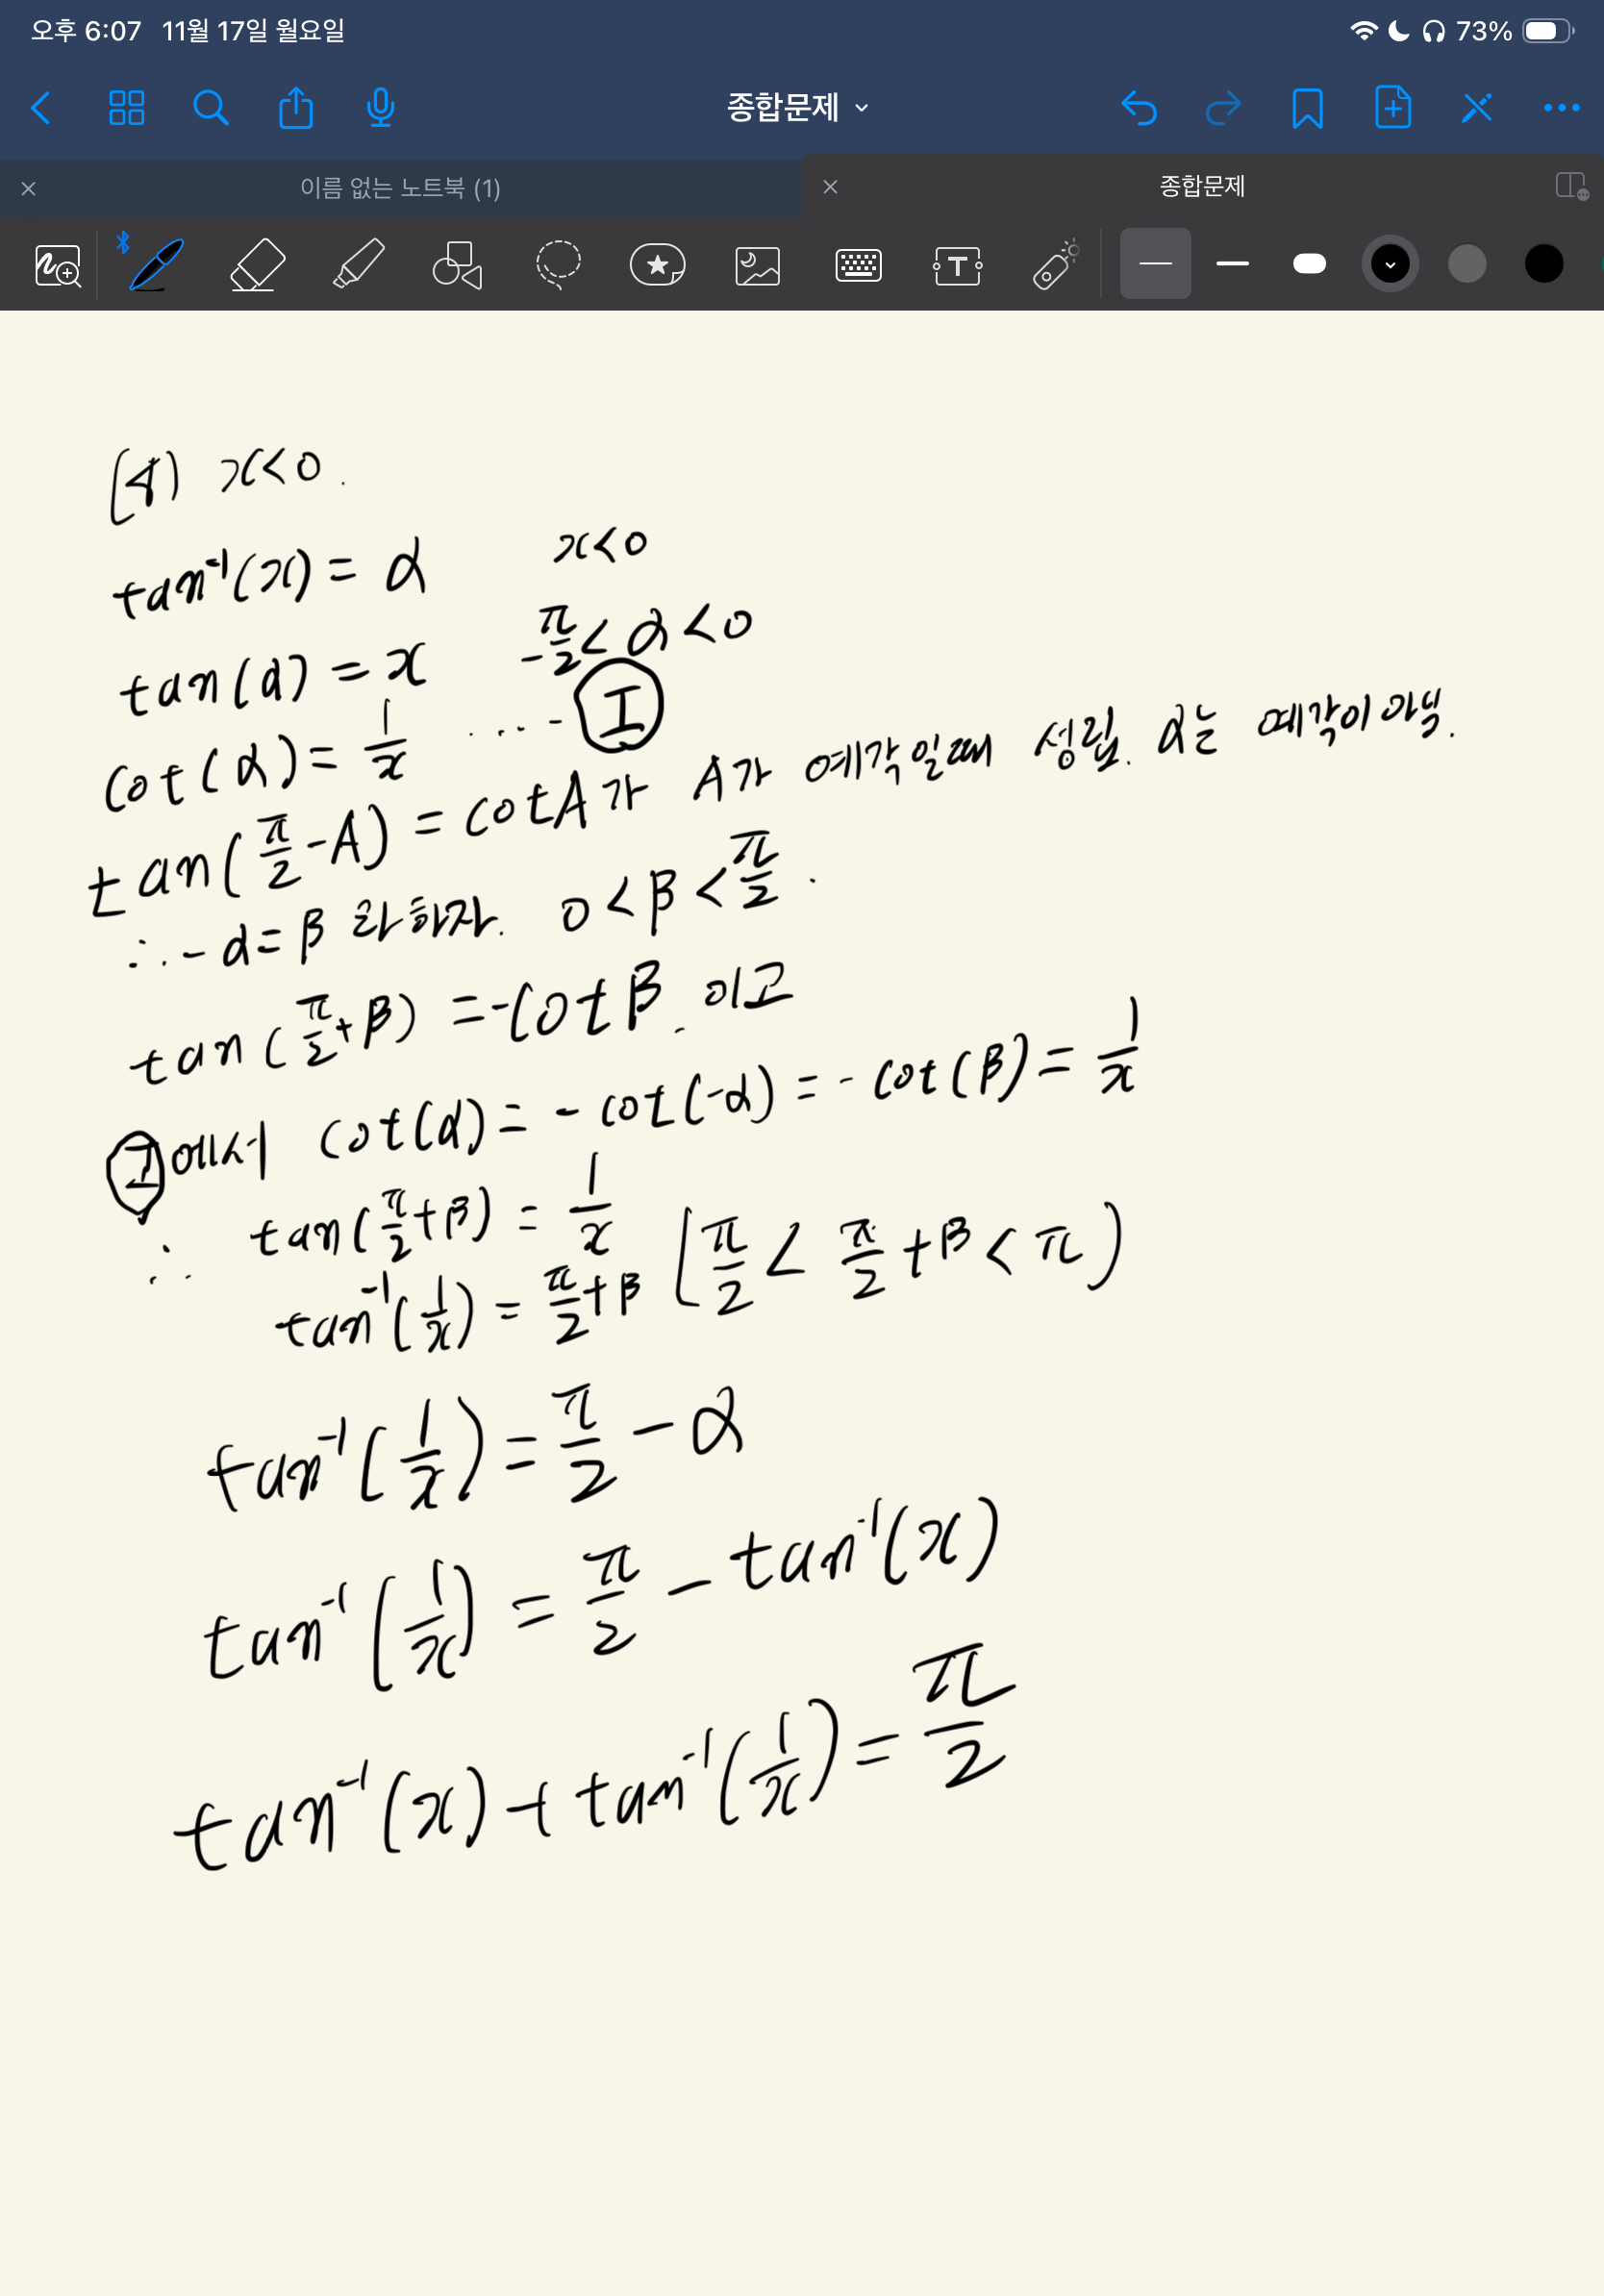 오후 6:07 11월 17일 월요일 73%
종합문제
이름 없는 노트북 (1) 종합문제
T
(4) x<0.
tan⁻¹(x) = α x<0
tan(α) = x -π/2 < α < 0
cot(α) = 1/x ···- Ⓘ
tan(π/2 - A) = cotA가 A가 예각일때 성립. α는 예각이 아님.
∴ -α = β 라하자. 0 < β < π/2.
tan(π/2 + β) = -cotβ. 이고
Ⓘ에서 cot(α) = -cot(-α) = -cot(β) = 1/x
∴ tan(π/2 + β) = 1/x
tan⁻¹(1/x) = π/2 + β [π/2 < π/2 + β < π)
tan⁻¹(1/x) = π/2 - α
tan⁻¹(1/x) = π/2 - tan⁻¹(x)
tan⁻¹(x) + tan⁻¹(1/x) = π/2